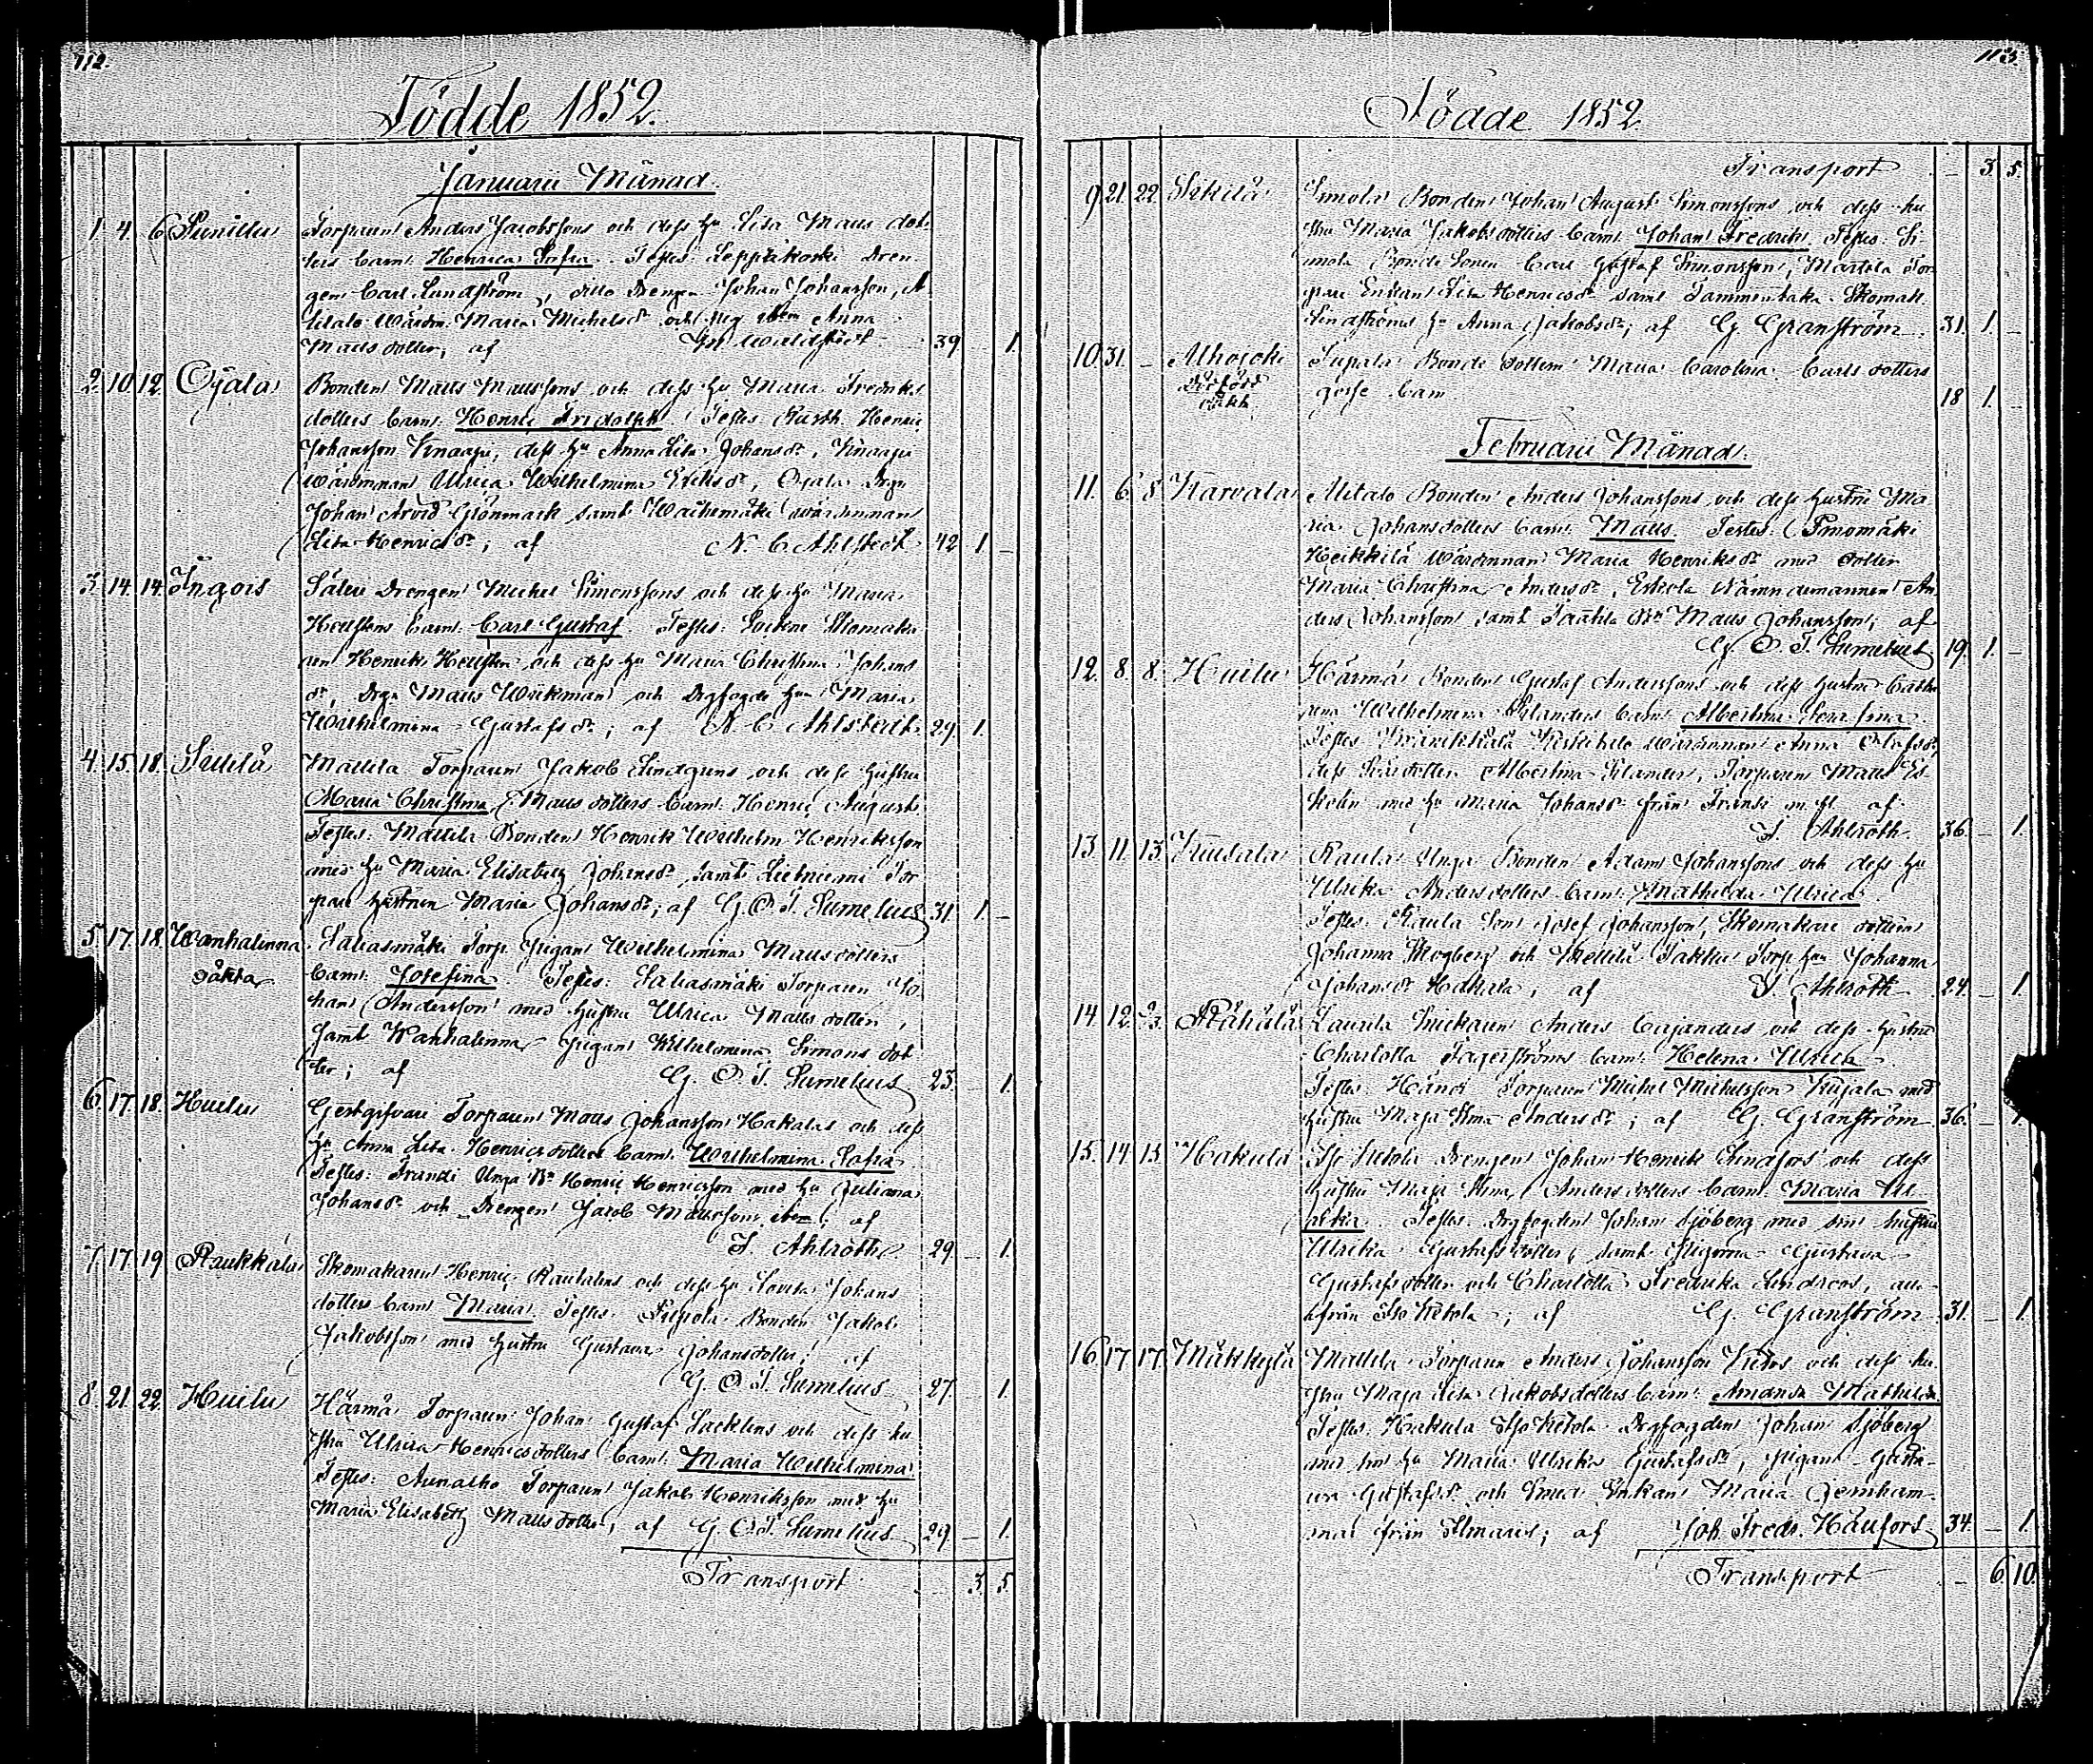 112.
Födde 1852.
Januarii Månad.
1. 4. 6 Torparen Anders Jacobssons och dess hu Lisa Matts dot-
ters barn: Henrica Sofia. Testes: Leppäkoski Dren-
gen Carl Lundström, ditto Drengen Johan Johansson, A
Wärdin. Maria Michelsdr och Anna
Matts dotter; af 39 1.
2. 10. 12. Ojala Bonden Matts Mattssons och dess hu Maria Fredriks
dotters barn: Henric Fridolf. Testes: Rusth. Henric
Johansson Knaapi, dess hu Anna Lisa Johansdr, Knaapi
wärdinnan Ulrica Wilhelmina Eriksdr, Ojala Drgn
Johan Arvid Grönmark samt wärdinnan
Lisa Henricsdr; af N. C. Ahlstedt 42 1 –
3. 14. 14. Ingois Säteri Drengen Michel Simonssons och dess hu Maria
Hellstens barn: Carl Gustaf. Testes: Sockne Skomaka-
ren Henrik Hellsten och dess hu Maria Christina Johans
dr, Drgn Matts Wickman och Drgfogde hun Maria
Wilhelmina Gustafsdr; af N. C. Ahlstedt 29. 1.
4. 15. 18. Mattila Torparen Jakob Lindgrens och dess hustru
Maria Christina Matts dotters barn: Henric August.
Testes: Mattila Bonden Henrik Wilhelm Henriksson
med hu Maria Elisabeth Johansdr, samt Tor-
pare hustrun Maria Johansdr; af G. O. T. Sumelius 31. 1. –
5. 17. 18. Wanhalinna Saliasmäki Torp. pigan Wilhelmina Matts dotters
oäkta barn: Josefina. Testes: Saliasmäki Torparen Jo-
han Andersson med hustru Ulrica Matts dotter,
samt Wanhalinna pigan Wilhelmina Simons dot-
ter; af G. O. T. Sumelius 23. – 1.
6. 17. 18. Huilu Gestgifvari Torparen Matts Johansson Hakalas och dess
hu Anna Lisa Henrics dotters barn: Wilhelmina Sofia
Testes: Franki Unga Bn Henric Henricsson med hu Juliana
Johansdr och Drengen Jacob Mattsson; af
F. Ahlroth 29 – 1.
7. 17. 19 Raukkala Skomakaren Henric Rautalins och dess hu Lovisa Johans
dotters barn Maria. Testes: Bonden Jakob
Jakobsson med hustru Gustava Johansdotter; af
G. O. T. Sumelius 27. 1.
8. 21. 22. Huilu Härmä Torparen Johan Gustaf Säcklens och dess hu-
stru Ulrica Henricsdotters barn: Maria Wilhelmina.
Testes: Torparen Jakob Henriksson med hu
Maria Elisabeth Matts dotter; af G. O. T. Sumelius 29 – 1.
Transport – 3. 5.
113.
Födde 1852
Transport – 3. 5.
9. 21. 22. Bonden Johan August Simonssons och dess hu
stru Maria Jakobsdotters barn: Johan Fredrik. Testes: Si-
mola Bonde Sonen Carl Gustaf Simonsson, Marttila Tor-
pare Enkan Lisa Henricsdr samt Tammentaka Skomak.
Lindströms hu Anna Jakobsdr; af G. Granström 31. 1. –
10. 31. – Alhojoki Bonde dottern Maria Carolina Carls dotters
dödfödt oäkta gosse barn 18 1. –
Februarii Månad.
11. 6. 8. Karvala Alitalo Bonden Anders Johanssons och dess hustru Ma-
ria Johansdotters barn: Matts. Testes:
Heikkilä wärdinnan Maria Henriksdr med dotter
Maria Christina Andersdr, Eskola Nämndemannen An-
ders Johansson samt Bn Matts Johansson; af
G. O. T. Sumelius 19. 1. –
12. 8. 8. Huilu Härmä Bonden Gustaf Anderssons och dess hustru Catha-
rina Wilhelmina Silanders barn: Albertina Serafina.
Testes wärdinnan Anna Olofsdr,
dess dotter Albertina Silander, Torparen Matts Es-
kolin med hu Maria Johansdr från Franki m. fl. af
F. Ahlroth 36. – 1.
13. 11. 13. Raula Unga Bonden Adam Johanssons och dess hu
Ulrika Anders dotters barn: Mathilda Ulrica
Testes: Raula Son Josef Johansson, Skomakare dottern
Johanna Skogberg och Torp. hun Johanna
Johansdr Hakala; af F. Ahlroth 24. – 1.
14 12. Rähälä Laurila Snickaren Anders Cajanders och dess hustru
Charlotta Fagerströms barn: Helena Ulrica.
Testes: Torparen Michel Michelsson Kujala med
hustru Maja Stina Andersdr; af G. Granström 36. – 1.
15. 14 15 Hakula Iso Ketola Drengen Johan Henrik Lindfors och dess
hustru Maja Stina Andersdotters barn: Maria Ul-
rika. Testes: Drgfogden Johan Sjöberg med sin hustru
Ulrika Gustafsdotter, samt Pigorna Gustava
Gustafsdotter och Charlotta Fredrika Lindroos, alla
från Iso Ketola; af G. Granström 31. – 1.
16 17 17. Mäkkylä Mattila Torparen Anders Johansson och dess hu-
stru Maja Lisa Jakobsdotters barn: Amanda Mathilda.
Testes: Hakula Iso Ketola Drgfogden Johan Sjöberg
med sin hu Maria Ulrika Gustafsdr, pigan Gusta-
va Gustafsdr och Enkan Maria
från Ilmaris; af Joh. Fredr. Häufors 34. – 1.
Transport – 6. 10.